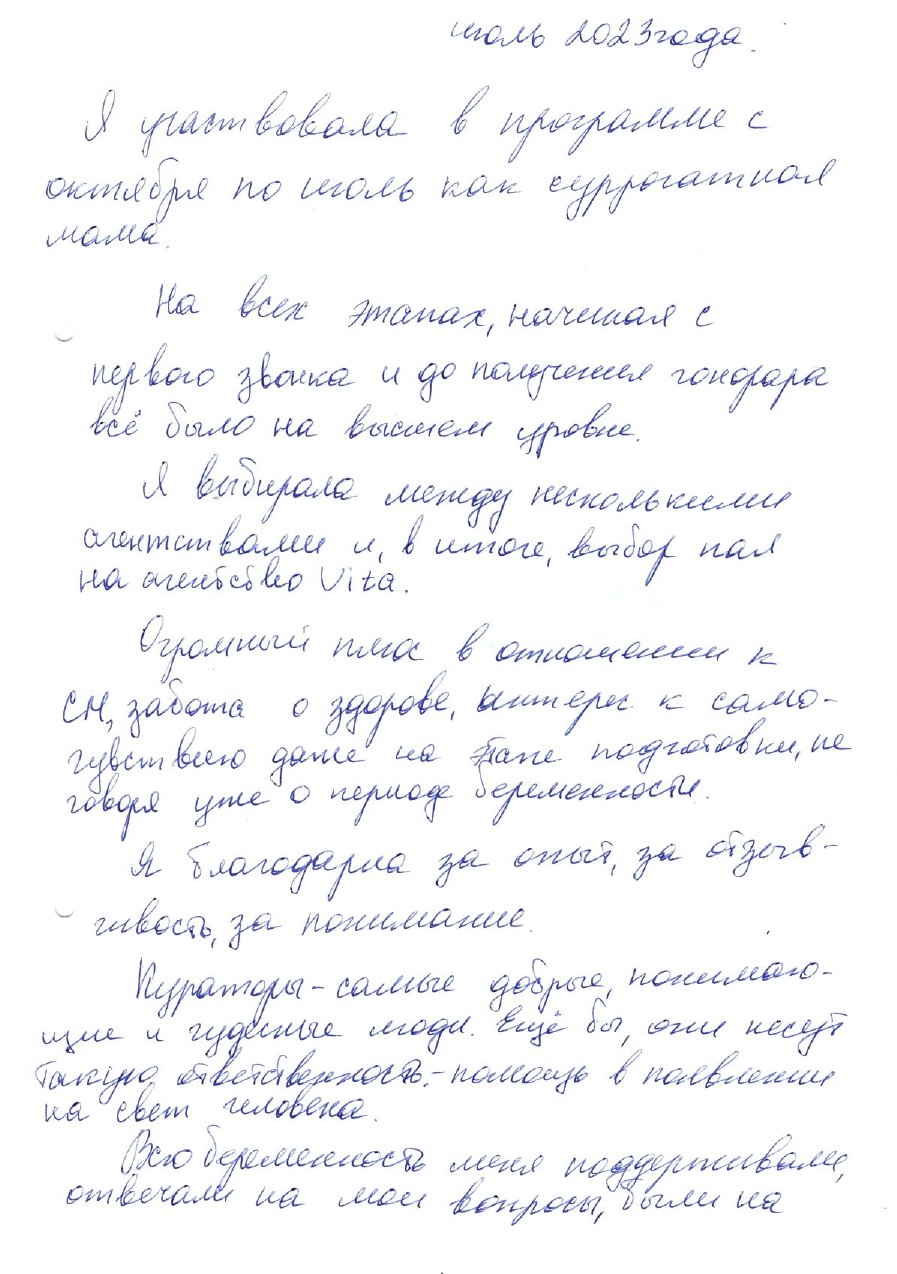 июль 2023 года.
Я участвовала в программе с
октября по июль как суррогатная
мама.
На всех этапах, начиная с
первого звонка и до получения гонорара
всё было на высшем уровне.
Я выбирала между несколькими
агентствами и, в итоге, выбор пал
на агентство Vita.
Огромный плюс в отношении к
СМ, забота о здоровье, интерес к само-
чувствию даже на этапе подготовки, не
говоря уже о периоде беременности.
Я благодарна за опыт, за отзыв-
чивость, за понимание.
Кураторы - самые добрые, понимаю-
щие и чудесные люди. Ещё бы, они несут
такую ответственность, - помощь в появлении
на свет человека.
Всю беременность меня поддерживали,
отвечали на мои вопросы, были на